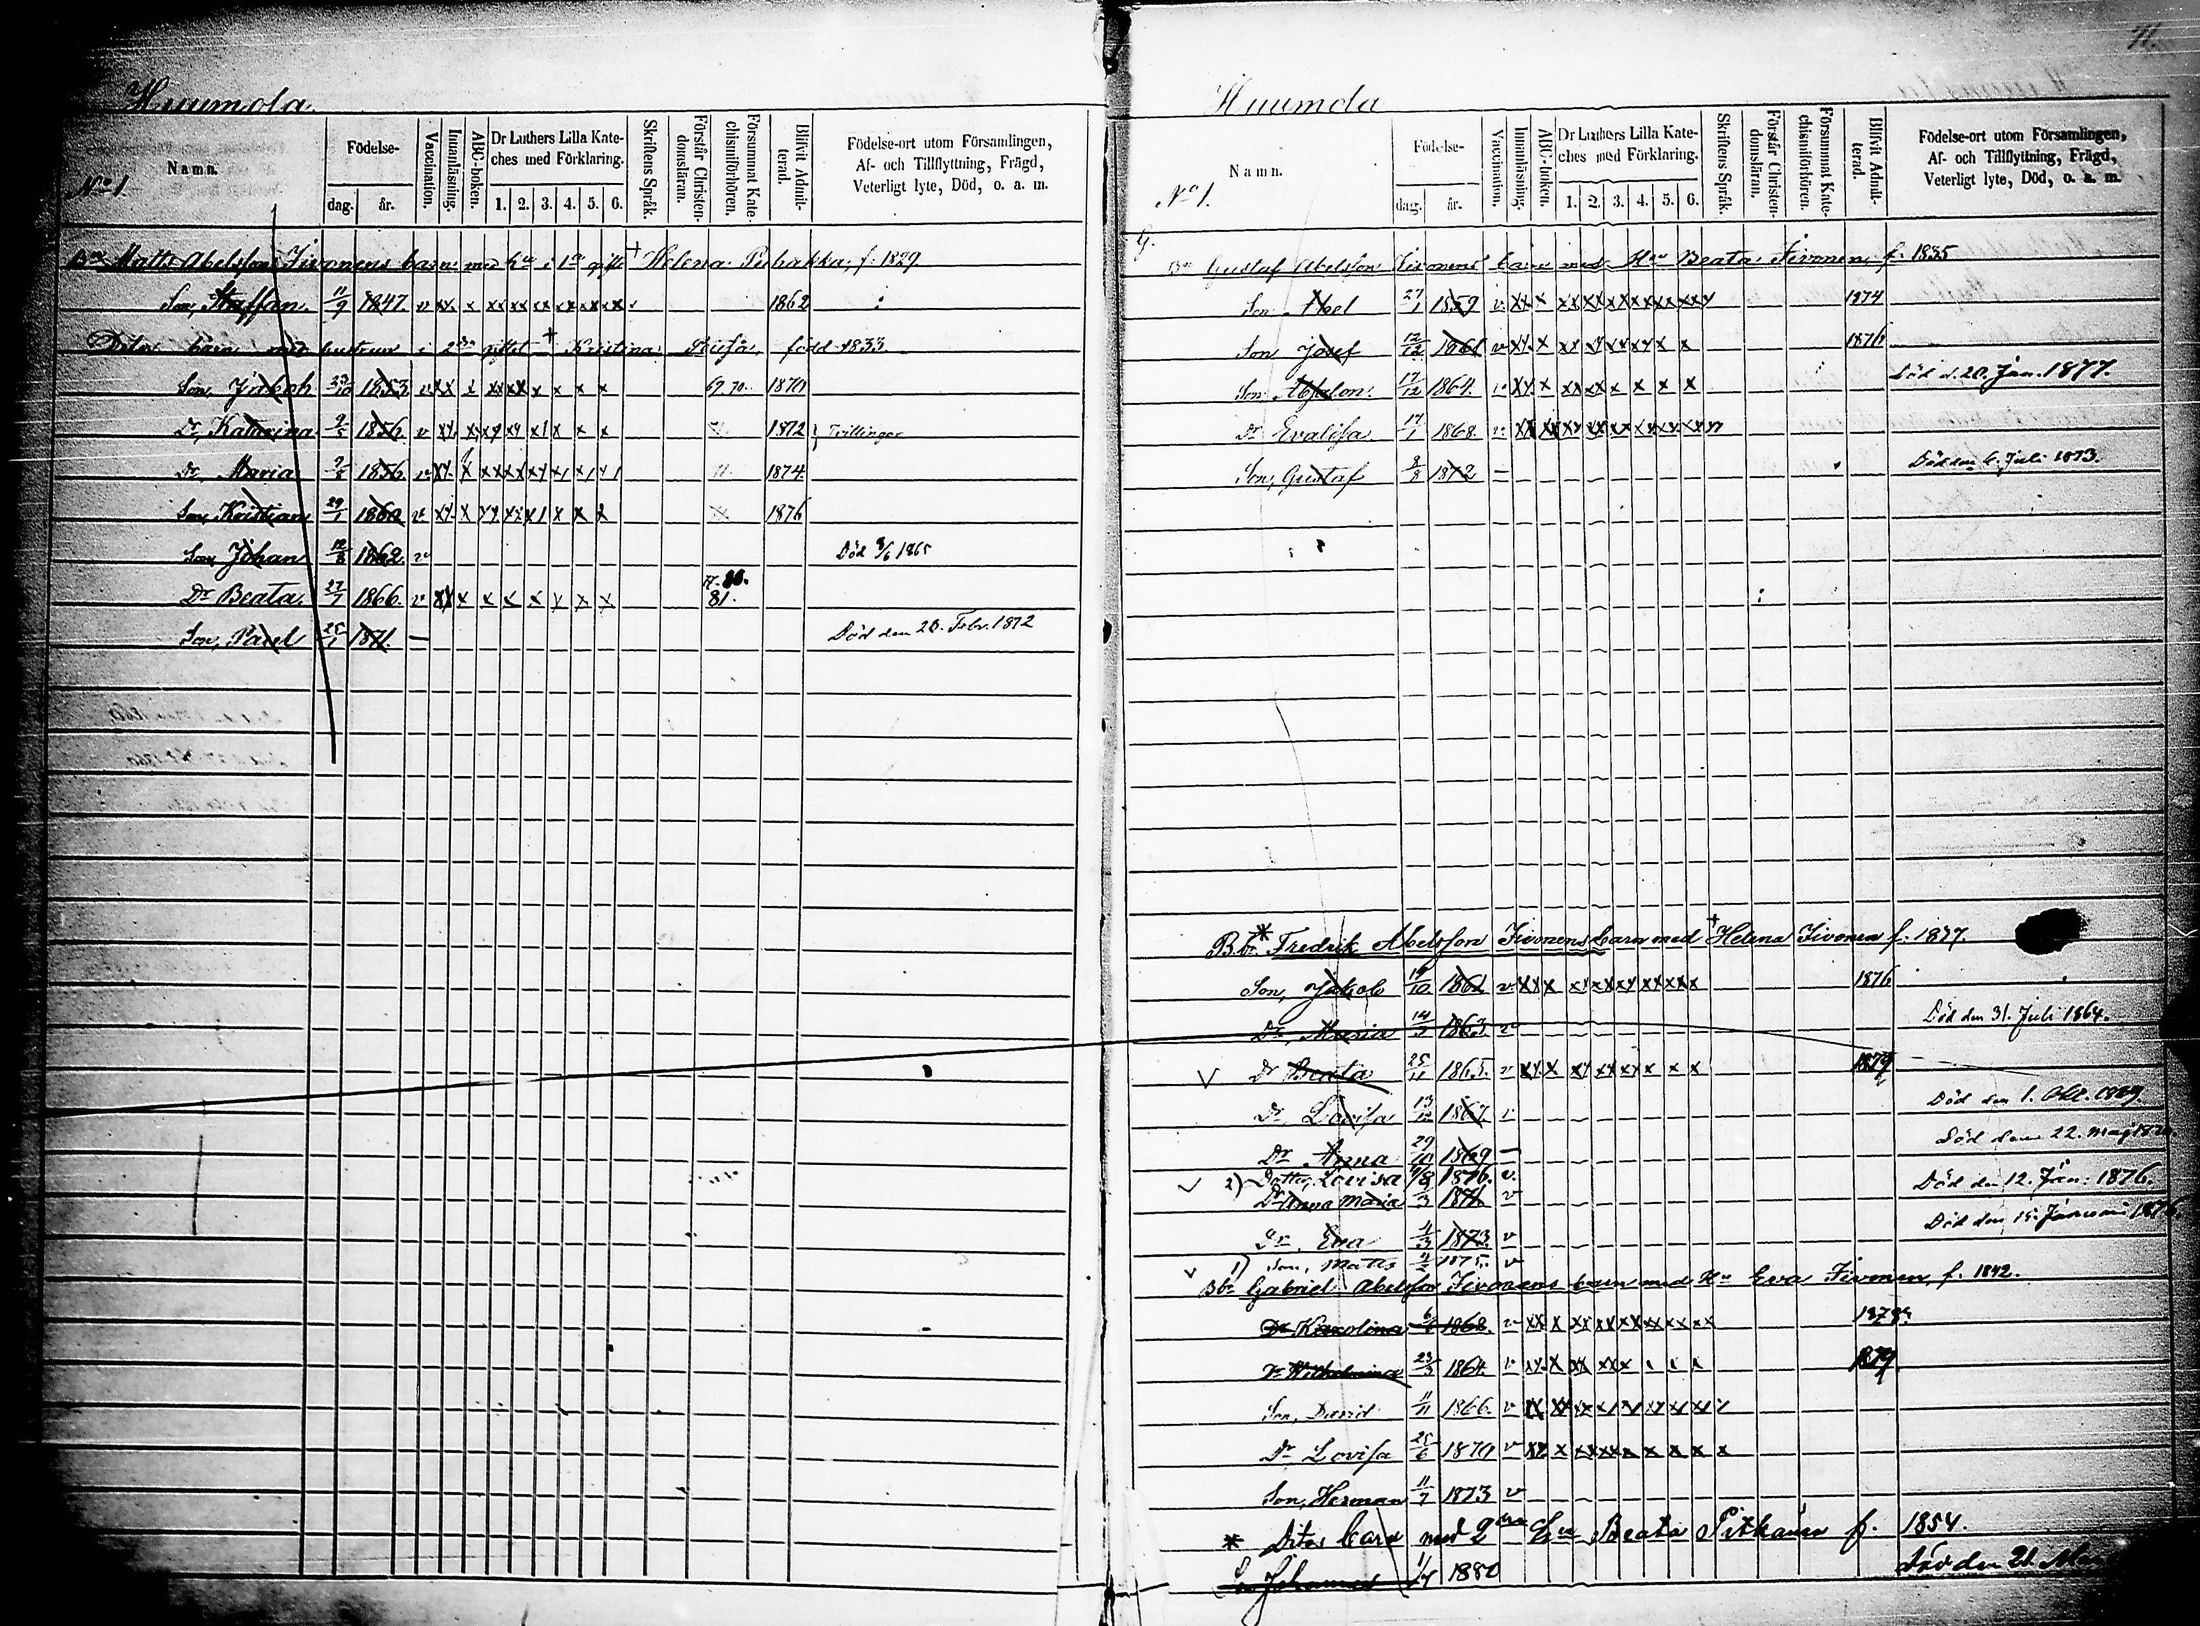 Huumola
No 1.
Namn.
Födelse-
dag. år.
Vaccination.
Innanläsning.
ABC-boken.
Dr Luthers Lilla Kate-
ches med Förklaring.
1. 2. 3. 4. 5. 6.
Skriftens Språk.
Förstår Christen-
domsläran.
Försummat Kate-
chismiförhören.
Blifvit Admit-
terad.
Födelse-ort utom Församlingen,
Af- och Tillflyttning, Frägd,
Veterligt lyte, Död, o. a. m.
Matts Abelsson Tivonens barn med hu i 1a gifte + Helena Puhakka, f. 1829
Son, Staffan. 11/9 1847. v 1862
Ditos barn med hustrun i 2dra giftet + Kristina född 1833.
Son, Jakob 1853 v 69. 70. 1870
Dr, Katarina 1856. v 1872 Tvillingar
Dr, Maria 1856. v 1874.
Son, Kristian 29/1 1860 v 1876
Son, Johan 12/8 1862. v Död 9/6 1865
Dr Beata. 27/7 1866. v 81.
Son, Pavel 25/1 1871. — Död den 26. Febr. 1872
71.
Huumola
No 1.
Namn.
Födelse-
dag. år.
Vaccination.
Innanläsning.
ABC-boken.
Dr Luthers Lilla Kate-
ches med Förklaring.
1. 2. 3. 4. 5. 6.
Skriftens Språk.
Förstår Christen-
domsläran.
Försummat Kate-
chismiförhören.
Blifvit Admit-
terad.
Födelse-ort utom Församlingen,
Af- och Tillflyttning, Frägd,
Veterligt lyte, Död, o. a. m.
Gustaf Abelsson Tivonens barn med Hu Beata Tivonen, f. 1835
Son Abel 27/1 1859 v 1874
Son Josef 12/12 1861 v 1876
Son Absalon. 17/12 1864. v Död d. 20. Jan. 1877.
Dr Evalisa 17/1 1868. v
Son, Gustaf 8/8 1872 — Död den 6. Juli 1873.
Bbr * Fredrik Abelsson Tivonens barn med + Helena Tivonen f. 1837.
Son, Jakob 19/10 1861 v 1876
Dr, Maria 14/3 1863 v Död den 31. Juli 1864.
Dr Beata 25/11 1865. v 1879
Dr Lovisa 13/12 1867. v Död den 1. Okt. 1869
Dr Anna 29/10 1869 — Död den 22. Maj
2) Dotter, Lovisa 9/8 1876. v.
Dr Anna Maria 1871 v Död den 12. Jan. 1876.
Dr. Eva 4/3 1873. v Död den 15. Januari 1876
1) Son, Matts 1875. v
Bbr Gabriel Abelsson Tivonens barn med Hu Eva Tivonen, f. 1842.
Dr Karolina 1862. v 1878.
Dr Wilhelmina 23/3 1864. v 1879
Son, David 11/11 1866. v
Dr Lovisa 25/6 1870 v
Son, Herman 11/7 1873 v
* Ditos barn med 2dra Hu Beata Pitkänen f. 1854.
Son Johannes 1/7 1880 Död den 21.